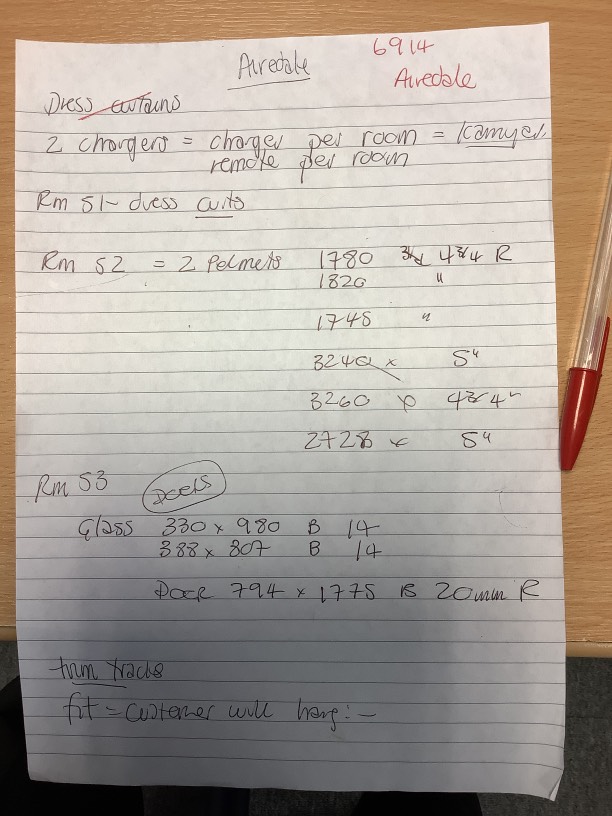 Airedale
6914
Airedale
Dress curtains
2 chargers = charger per room =
remote per room
Rm 51 - dress
Rm 52 = 2 Pelmets 1780 4 3/4 R
1820 "
1745 "
3240 x 5"
3260 x 4 3/4"
2728 x 5"
Rm 53
Glass 330 x 980 B 14
388 x 807 B 14
Door 794 x 1775 B 20mm R
trim tracks
fit = customer will hang :-